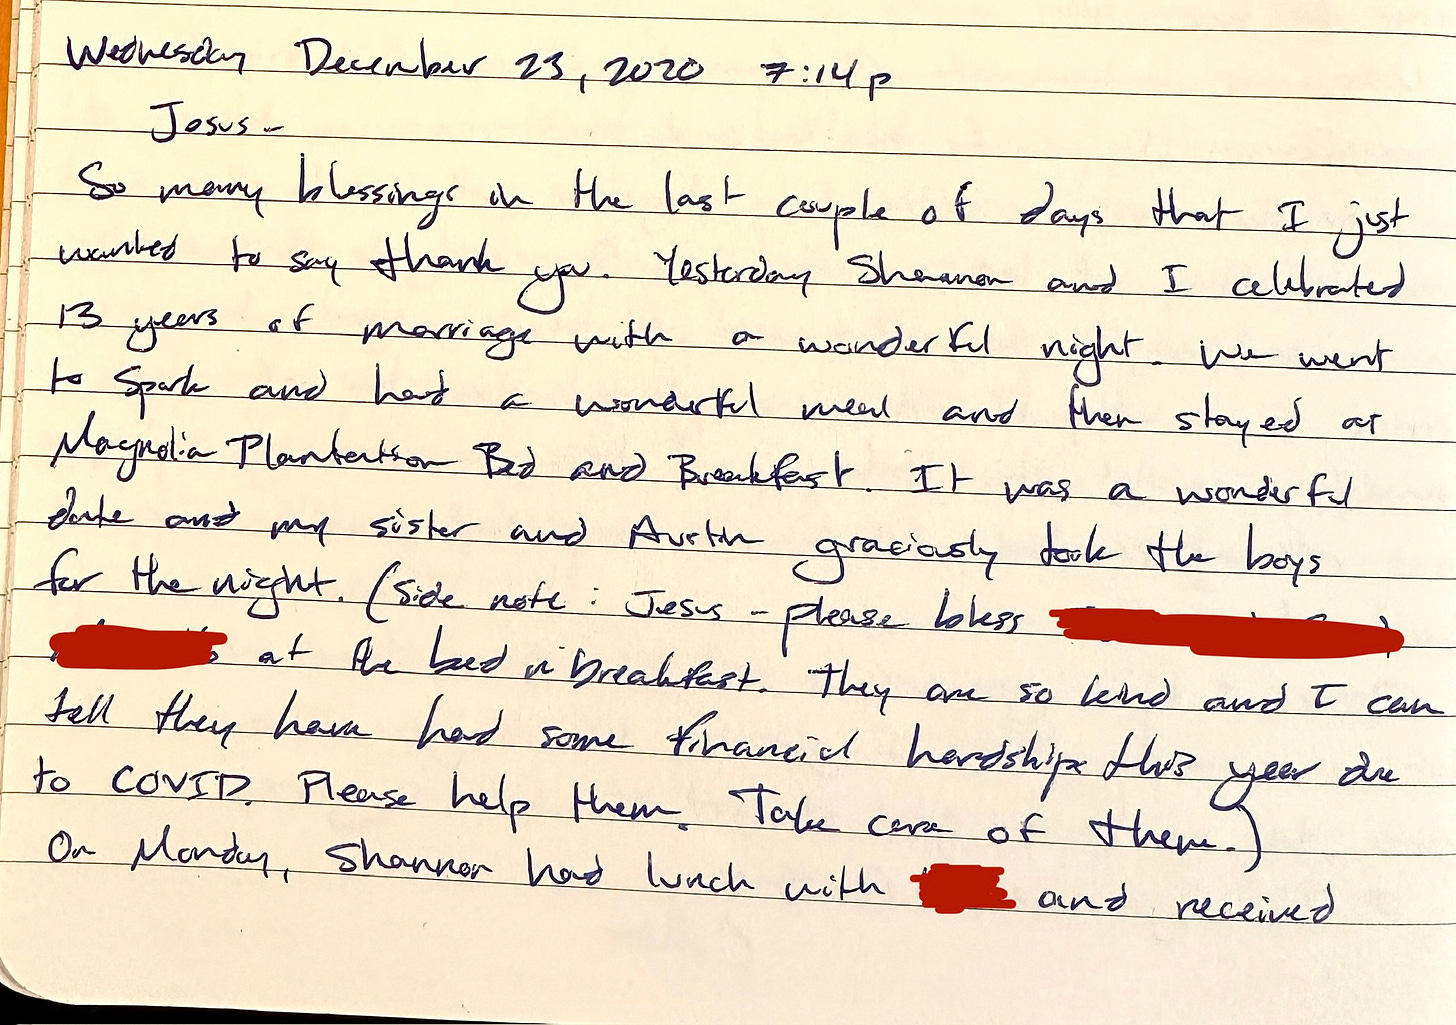 Wednesday December 23, 2020 7:14p
Jesus-
So many blessings in the last couple of days that I just
wanted to say thank you. Yesterday Shannon and I celebrated
13 years of marriage with a wonderful night. We went
to Spark and had a wonderful meal and then stayed at
Magnolia Plantation Bed and Breakfast. It was a wonderful
date and my sister and Austin graciously took the boys
for the night. (Side note: Jesus - please bless
at the bed n breakfast. They are so kind and I can
tell they have had some financial hardships this year due
to COVID. Please help them. Take care of them.)
On Monday, Shannon had lunch with and received